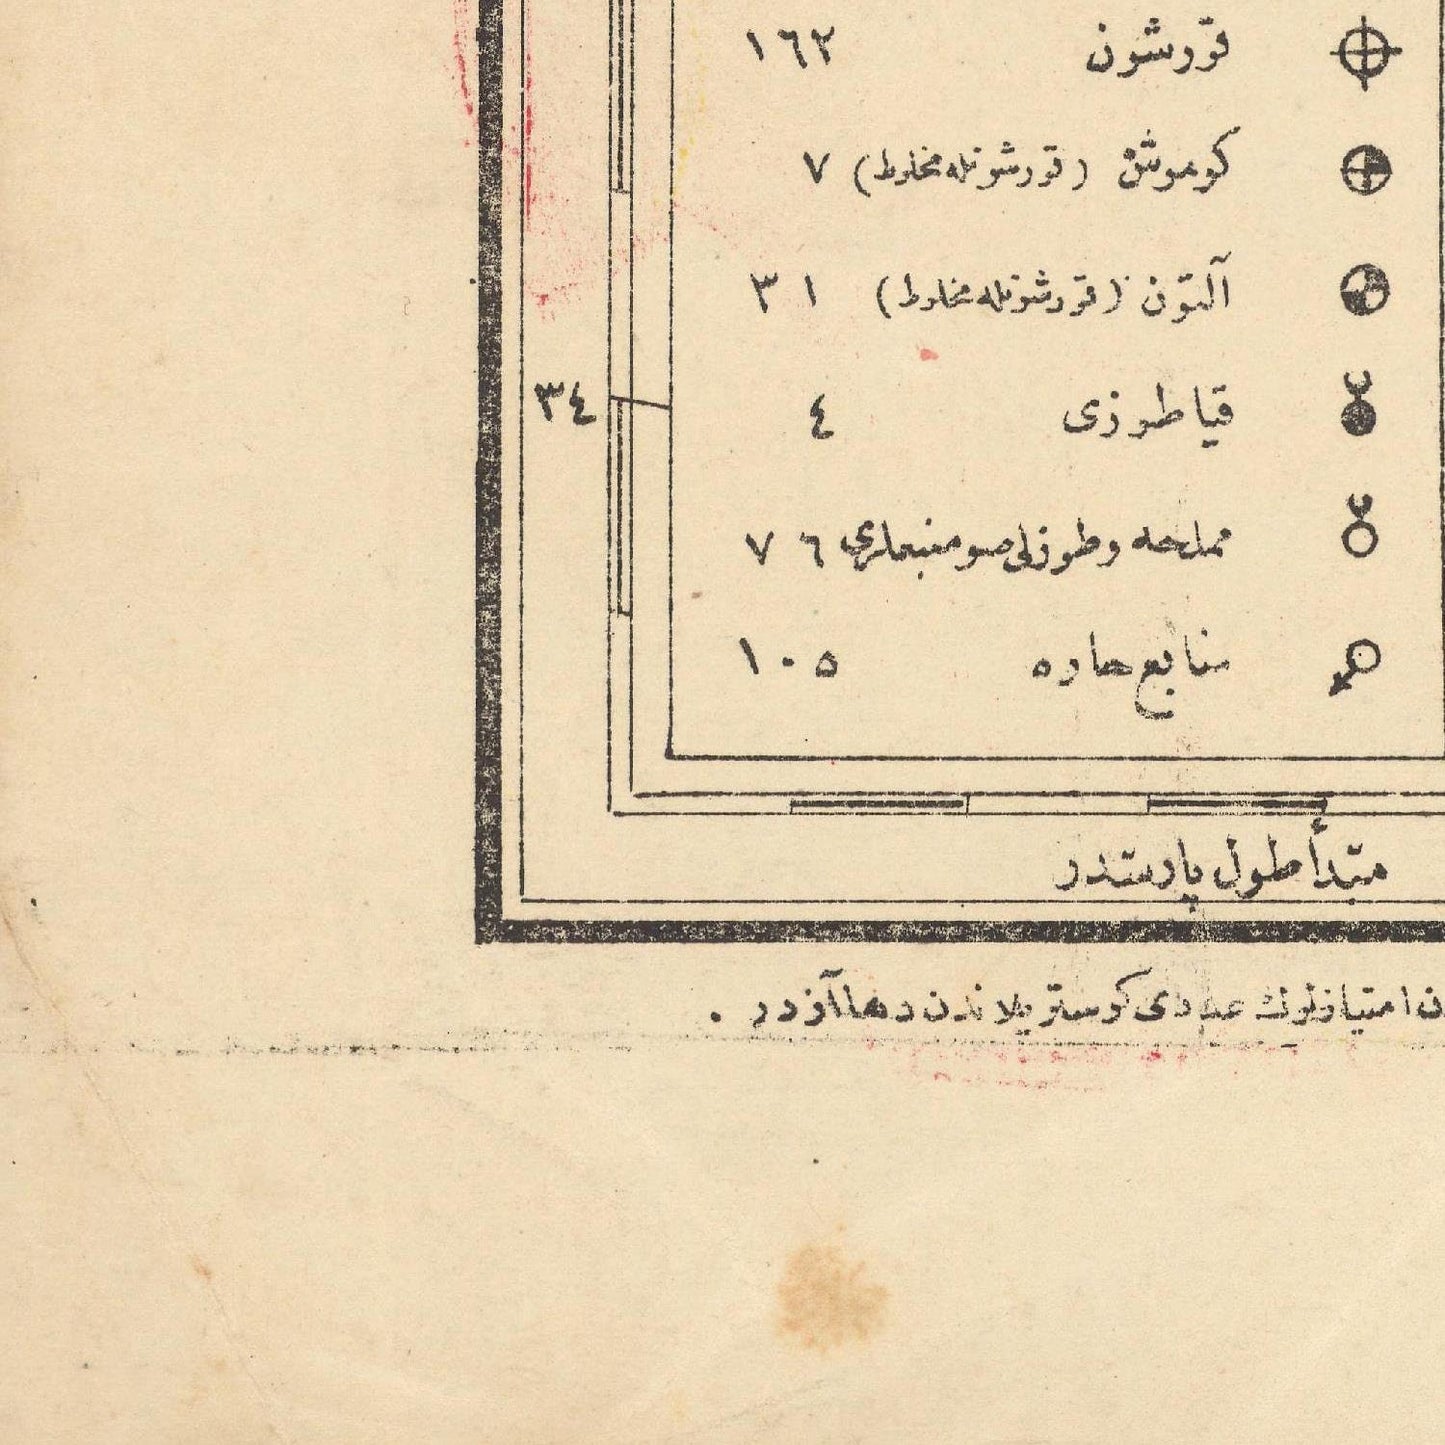 قورشون ١٦٢
كوموش (قورشونله مخلوط) ٧
آلتون (قورشونله مخلوط) ٣١
قيا طوزى ٤
٣٤
مملحه وطوزلى صو منبعلرى ٧٦
منابع حاره ١٠٥
مبتدأ طول پارستدر
ن امتيازلرك عددى كوستريلاندن دها آزدر .